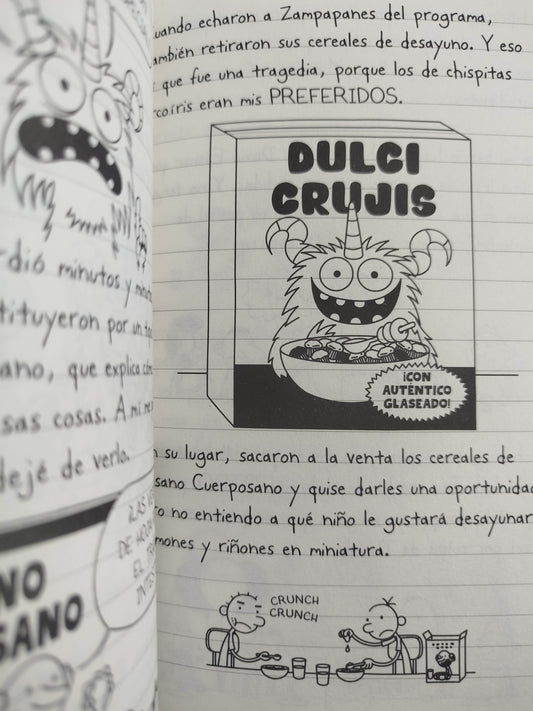 rdió minutos y
tituyeron por un
ano, que explica
sas cosas. A mí me
dejé de verlo.
NO
SANO
uando echaron a Zampapanes del programa,
ambién retiraron sus cereales de desayuno. Y eso
que fue una tragedia, porque los de chispitas
rcoíris eran mis PREFERIDOS.
DULCI
CRUJIS
¡CON
AUTÉNTICO
GLASEADO!
n su lugar, sacaron a la venta los cereales de
sano Cuerposano y quise darles una oportunidad
ro no entiendo a qué niño le gustará desayunar
mones y riñones en miniatura.
CRUNCH
CRUNCH